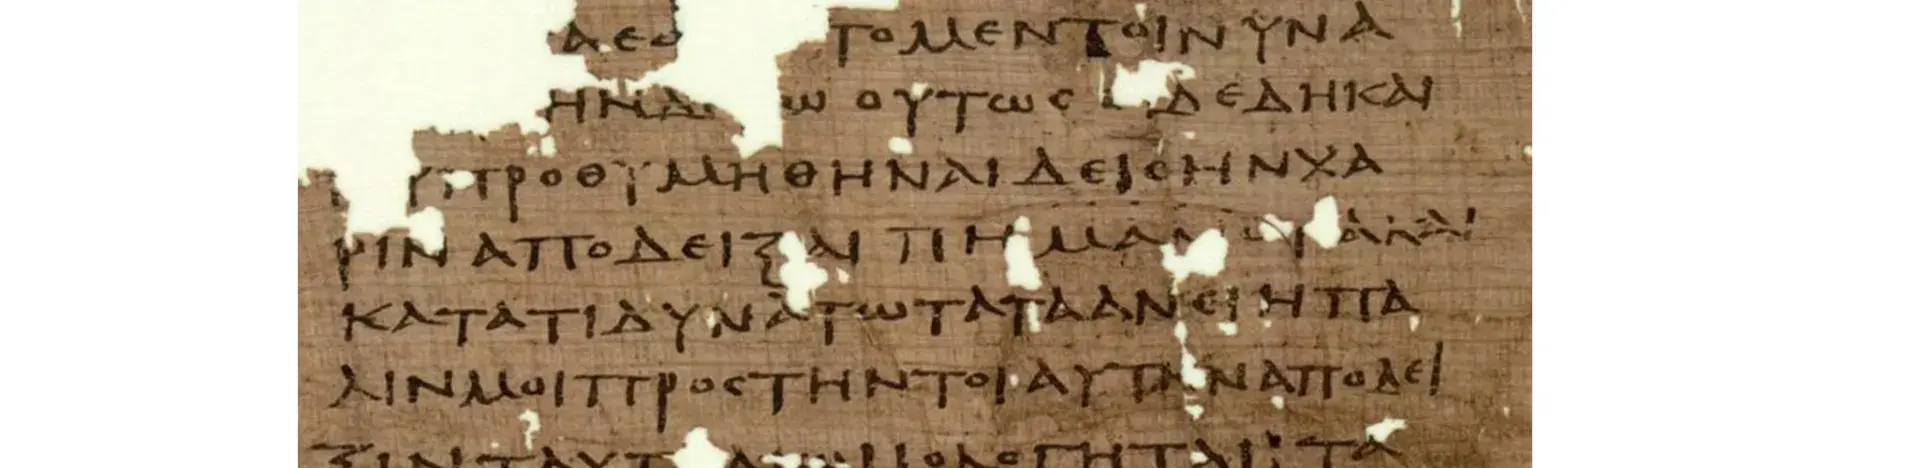 ΑΕΟ ΤΟΜΕΝΤΟΙΝΥΝΑ
ΗΝΔ Ω ΟΥΤΩϹ ΔΕΔΗΚΑΙ
ΥΠΡΟΘΥΜΗΘΗΝΑΙΔΕΙϹΗΝΧΑ
ΡΙΝΑΠΟΔΕΙΞΑΙ ΠΗΜΑΛ ΑΚΑΙ
ΚΑΤΑΤΙΔΥΝΑΤΩΤΑΤΑΑΝΕΙΗΠΑ
ΛΙΝΜΟΙΠΡΟϹΤΗΝΤΟΙΑΥΤΗΝΑΠΟΔΕΙ
ΞΙΝΤΑΥΤ ΜΟΛΟΓΗ ΤΑ